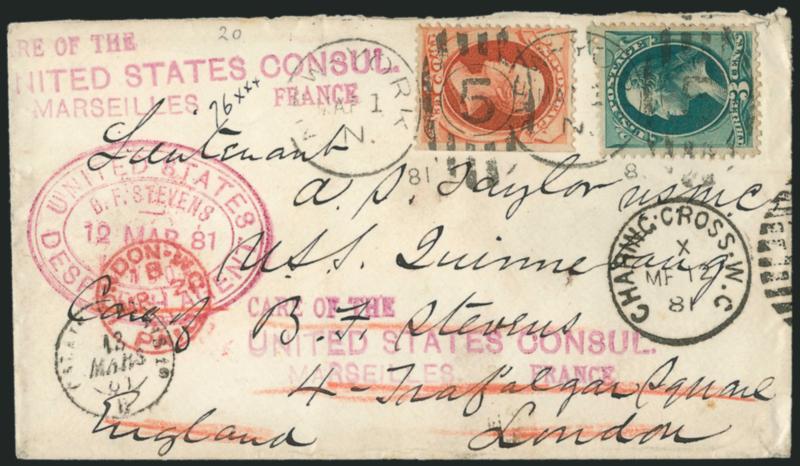 20
CARE OF THE
UNITED STATES CONSUL.
MARSEILLES FRANCE
76xxx
NEW YORK
1
81
5
Lieutenant
A. S. Taylor usmc
U.S.S. Quinnebaug
Care of B. F. Stevens
4 - Trafalgar Square
England London
UNITED STATES
B. F. STEVENS
12 MAR 81
DESPATCH AGENT
LONDON-W.C
PAID
CHARING-CROSS.W.C
X
MR 12
81
13
MARS
81
CARE OF THE
UNITED STATES CONSUL.
MARSEILLES. FRANCE
U.S. POSTAGE
3